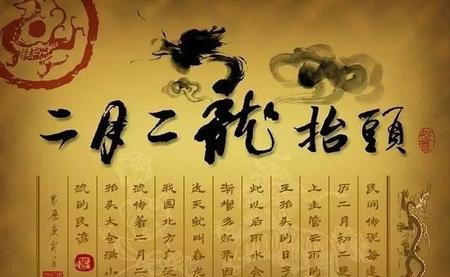 二月二龍抬頭
民间传说每逢
历二月初二是
上主管云雨的
王抬头的日子
此以后雨水会
渐增多起来因
这天就叫春龙
我国北方广泛
流传着二月二
抬头大仓满小
流的民谚